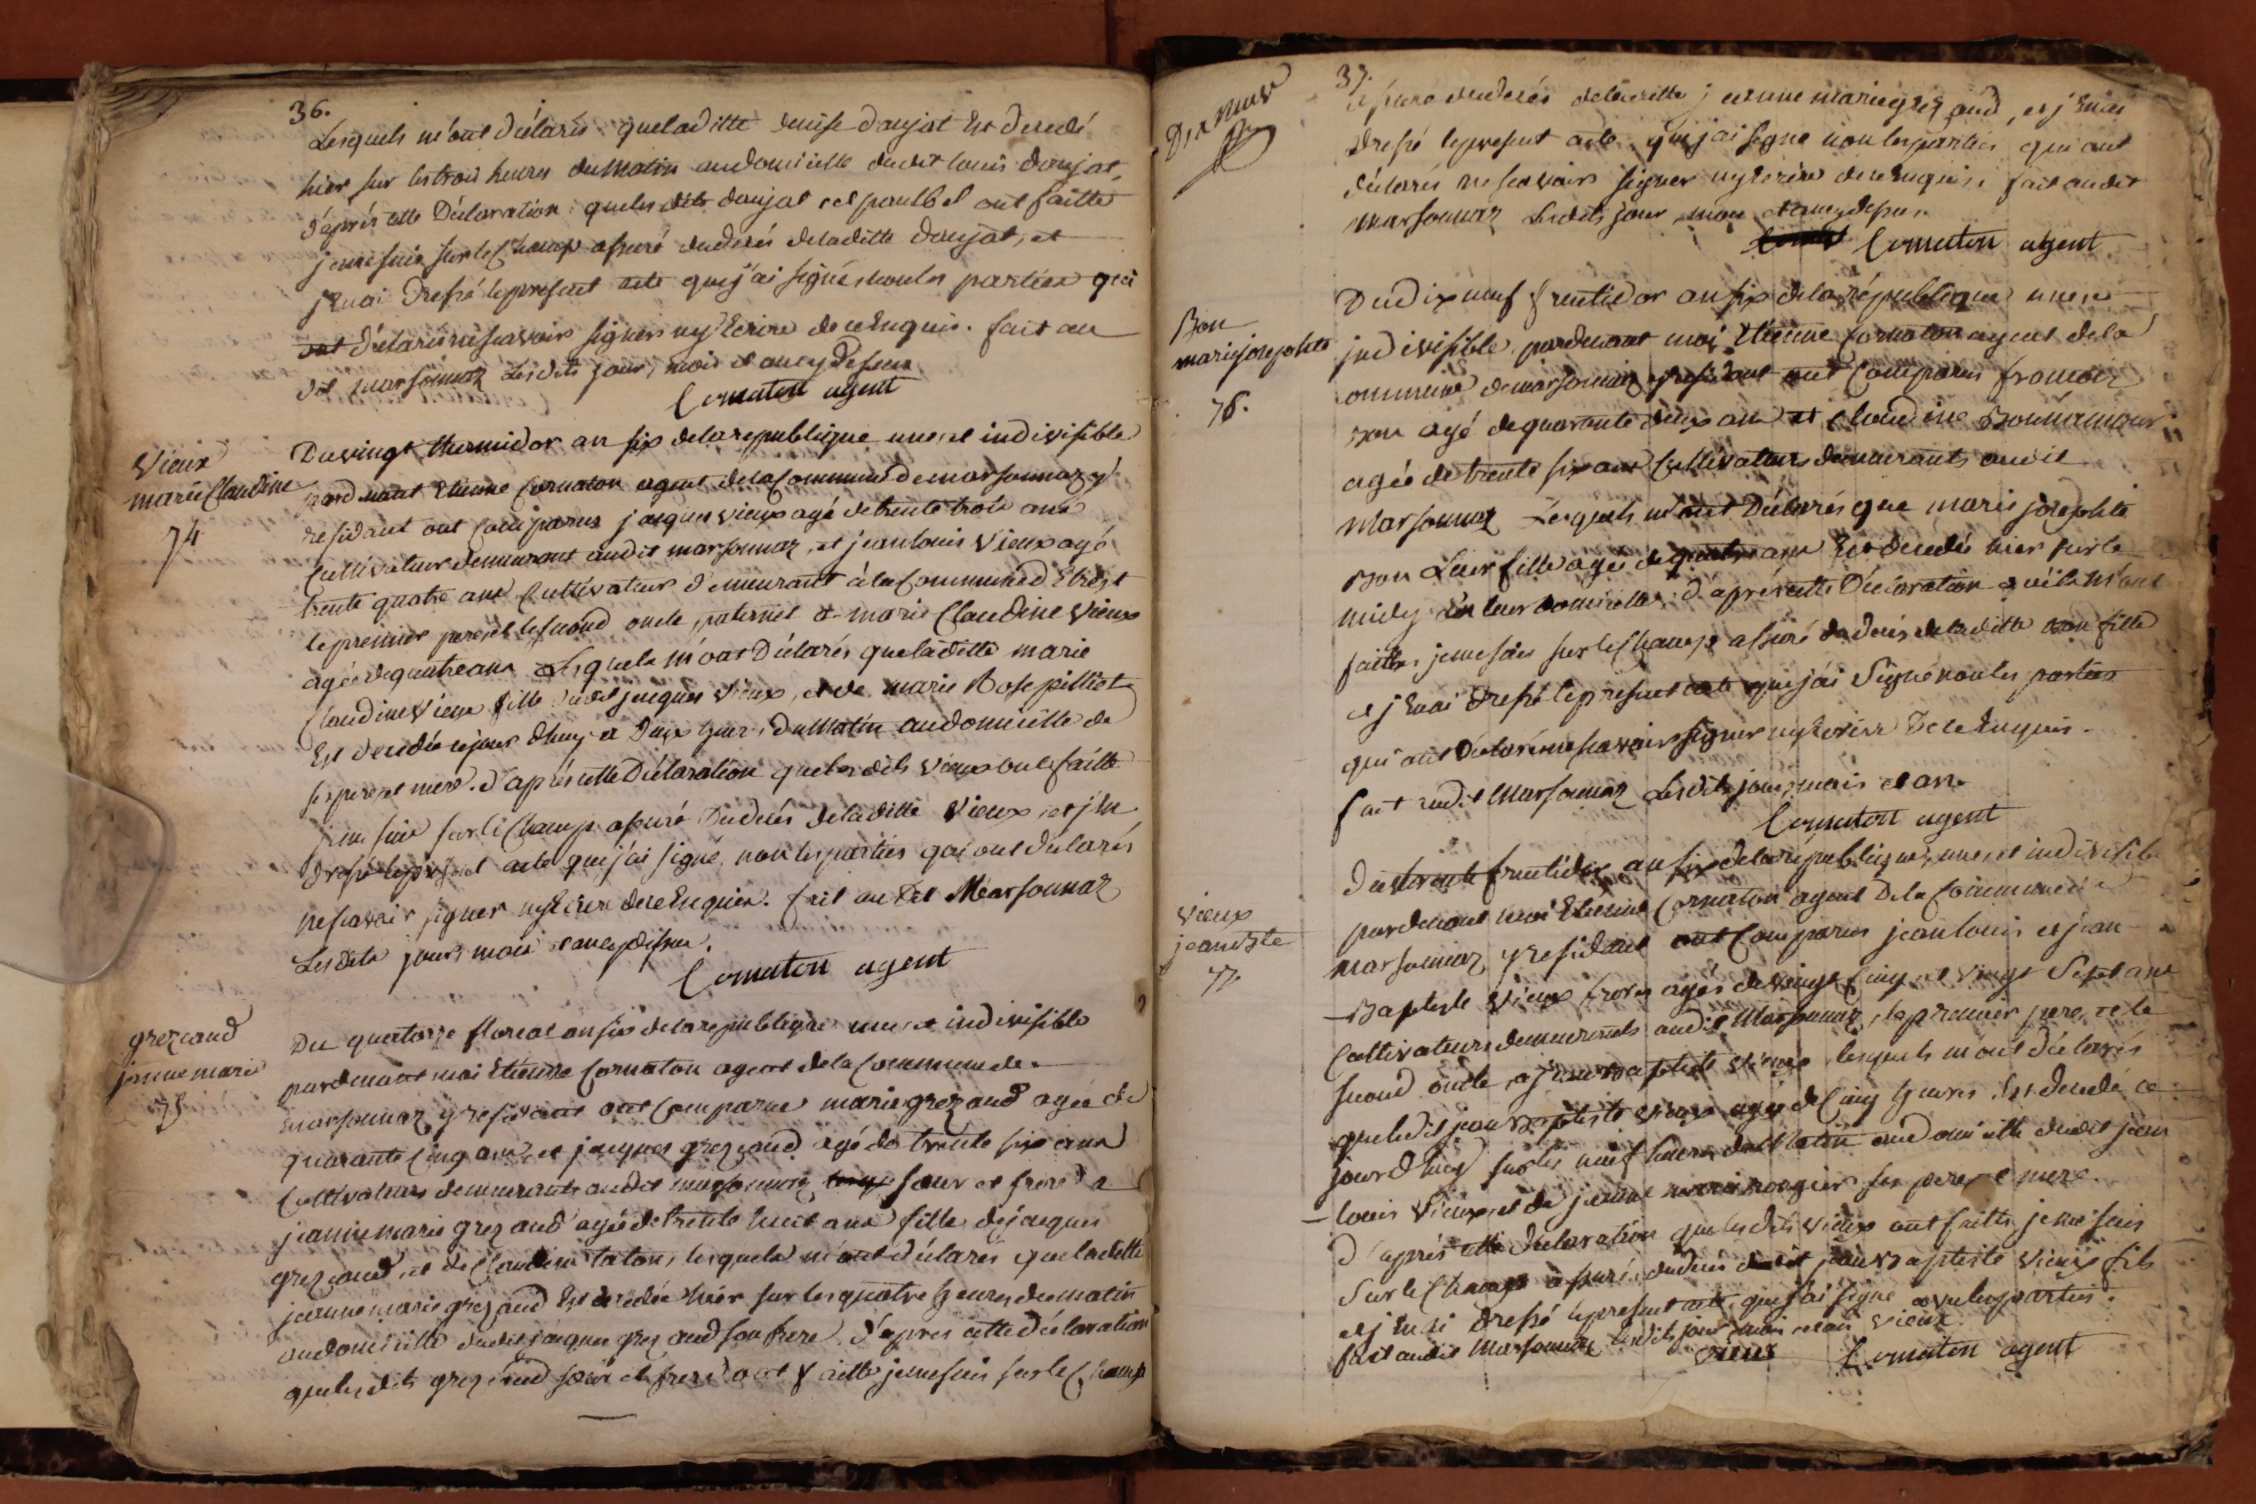 36.
Lesquels m'ont déclarés que laditte denise daujat Est decedé
hier sur les trois heures du Matin au domicille dudit louis daujat,
d'après cette Déclaration que lesdits daujat et paulbel ont faitte
je me suis sur le Champ assuré du decés de laditte daujat, et
j'en ai Dressé le present acte que j'ai signé, non les parties qui
ont déclarés ne scavoir signer ny Ecrire de ce Enquis. fait au
dit marsonnaz Lesdits jour, mois et an cy dessus
Cornaton agent
Vieux
marie Claudine
74
Du vingt thermidor an six de la republique une et indivisible
pard'evant Etienne Cornaton agent de la Commune de marsonnaz y
residant ont Comparus jacques vieux agé de trente trois ans
Cultivateur demeurant audit marsonnaz, et jean louis Vieux agé
trente quatre ans Cultivateur demeurant à la Commune d'Etrest
le premier pere et le second oncle paternel a marie Claudine Vieux
agée de quatre ans Lesquels m'ont Déclarés que laditte marie
Claudine Vieux fille dudit jacques Vieux, et de marie Rose pilliot
Est decedée ce jour d'huy a Deux heures du Matin au domicille de
ses pere et mere. d'après cette Déclaration que lesdits Vieux ont faitte
je me suis sur le Champ assuré Du decés de laditte Vieux, et j'en
dressé le present acte que j'ai signé, non les parties qui ont declarés
ne scavoir signer ny Ecrire de ce Enquis. fait audit Marsonnaz
Lesdits jours mois et an cy dessus.
Cornaton agent
grezaud
jeanne marie
75
Du quatorze floreal an six de la republique une et indivisible
pardevant moi Etienne Cornaton agent de la Commune de
marsonnaz y residant ont Comparus marie grezaud agée de
quarante cinq ans, et jacques grezaud agé de trente six ans
Cultivateurs demeurants audit marsonnaz, soeur et frere a
jeanne marie grezaud agée de trente huit ans fille de jacques
grezaud, et de Claudine taton, lesquels m'ont déclarés que laditte
jeanne marie grezaud Est decedée hier sur les quatre heures du matin
au domicille dudit jacques grezaud son frere. d'apres cette déclaration
que lesdits grezaud soeur et frere ont faitte je me suis sur le Champ
37.
Dix neuf
assuré du decés de laditte jeanne marie grezaud, et j'en ai
dressé le present acte que j'ai signé non les parties qui ont
déclarés ne scavoir signer ny Ecrire de ce enquis. fait audit
marsonnaz Lesdits jour, mois et an cy dessus.
Cornaton agent
Bon
marie josephte
76.
Du dix neuf fructidor an six de la république une et
indivisible, pardevant moi Etienne Cornaton agent de la
ommune de marsonnaz y residant ont Comparus francois
Bon agé de quarante deux ans et Claudine Bonnamour
agée de trente six ans Cultivateurs demeurants audit
Marsonnaz Lesquels m'ont Déclarés que marie josephte
Bon Leur fille agée de quatre ans Est decedée hier sur le
midy en leur domicille. d'après cette Déclaration qu'ils m'ont
faitte, je me suis sur le Champ assuré du decés de laditte Bon fille
et j'en ai Dressé le present acte que j'ai Signé non les parties
qui ont Déclaré ne scavoir signer ny Ecrire De ce Enquis.
fait audit Marsonnaz Lesdits jour, mois et an.
Cornaton agent
vieux
jean Bte
77
Du trente fructidor an six de la république, une et indivisible
pardevant moi Etienne Cornaton agent De la Commune de
marsonnaz y residant ont Comparus jean louis et jean
Baptiste Vieux freres agés de vingt Cinq et vingt Sept ans
Cultivateurs demeurants audit Marsonnaz, le premier pere, et le
second oncle, a jean Baptiste Vieux, lesquels m'ont déclarés
que ledit jean Baptiste vieux agé de Cinq heures Est decedé ce
jourd'huy sur les neuf heures du Matin au domicille dudit jean
louis Vieux et de jeanne marie rongier ses pere et mere
d'après cette declaration que lesdits vieux ont faitte je me suis
Sur le Champ assuré du decés dudit jean Baptiste vieux fils
et j'en ai Dressé le present acte que j'ai signé avec les parties.
fait audit Marsonnaz lesdits jour, mois et an Vieux
vieux Cornaton agent